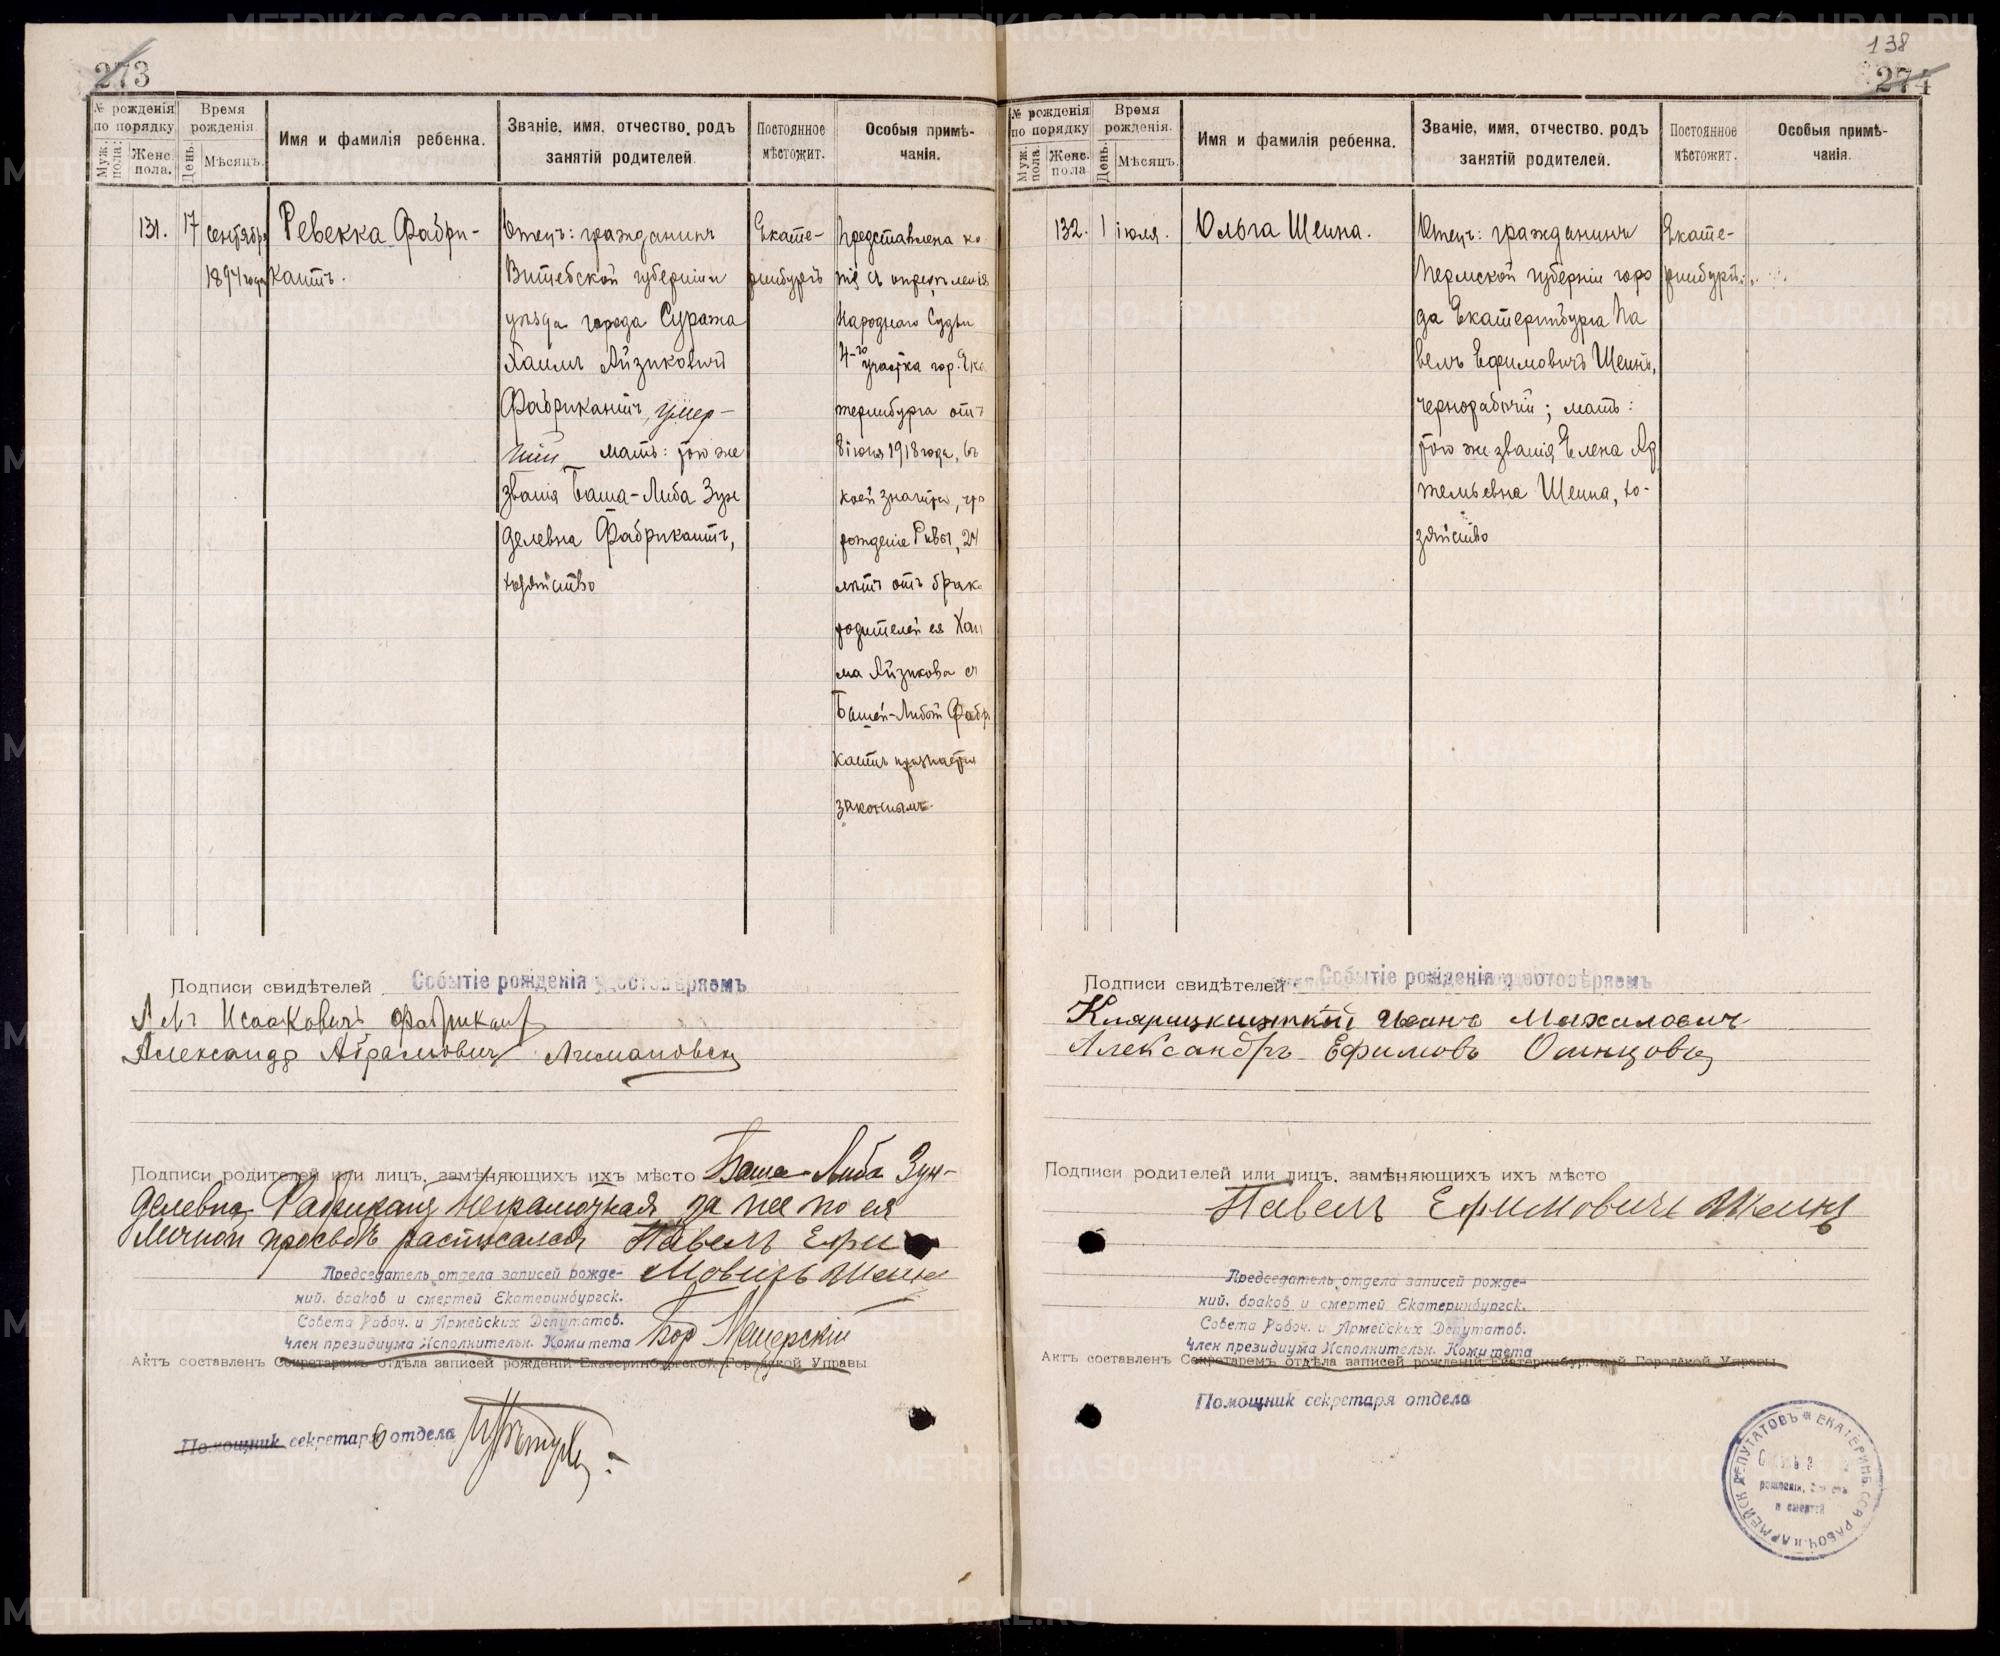 273
№ рожденія по порядку
Муж. пола.
Женс. пола.
Время рожденія.
День.
Мѣсяцъ.
Имя и фамилія ребенка.
Званіе, имя, отчество, родъ занятій родителей.
Постоянное мѣстожит.
Особыя примѣчанія.
131.
17
сентября
1894 года
Ревекка Фабри-
кантъ.
Отецъ: гражданинъ
Витебской губерніи
уѣзда города Суража
Хаимъ Айзиковичъ
Фабрикантъ, умер-
шій мать: того же
званія Баша-Либа Зун
делевна Фабрикантъ,
хозяйство
Екате-
ринбургъ
Представлена ко
пія съ опредѣленія
Народнаго Судьи
4-го участка гор. Ека
теринбурга отъ
8 іюня 1918 года, въ
коей значится, что
рожденіе Ривы, 24
лѣтъ отъ брака
родителей ея Хаи
ма Айзикова съ
Башей-Либой Фабри
кантъ признается
законнымъ.
Подписи свидѣтелей
Событіе рожденія удостовѣряемъ
Левъ Исааковичъ Фабрикант
Александр Абрамович
Подписи родителей или лицъ, замѣняющихъ ихъ мѣсто Баша-Либа Зун-
делевна Фабрикантъ неграмотная за нее по ея
личной просьбѣ расписался Павелъ Ефи
мовичъ Шеинъ
Председатель отдела записей рожде-
ний, браков и смертей Екатеринбургск.
Совета Рабоч. и Армейских Депутатов.
Член президиума Исполнительн. Комитета
Актъ составленъ Секретаремъ отдѣла записей рожденій Екатеринбургской Городской Управы
Помощник секретарь отдела
138
274
№ рожденія по порядку
Муж. пола.
Женс. пола
Время рожденія.
День.
Мѣсяцъ.
Имя и фамилія ребенка.
Званіе, имя, отчество, родъ занятій родителей.
Постоянное мѣстожит.
Особыя примѣчанія.
132.
1
іюля.
Ольга Шеина.
Отецъ: гражданинъ
Пермской губерніи горо
да Екатеринбурга Па
велъ Ефимовичъ Шеинъ,
чернорабочій; мать:
того же званія Елена Ар
темьевна Шеина, хо-
зяйство
Екате-
ринбургъ
Подписи свидѣтелей
Событіе рожденія удостовѣряемъ
Иванъ Михаловичъ
Александръ Ефимовъ
Подписи родителей или лицъ, замѣняющихъ ихъ мѣсто
Павелъ Ефимовичъ Шеинъ
Председатель отдела записей рожде-
ний, браков и смертей Екатеринбургск.
Совета Рабоч. и Армейских Депутатов.
Член президиума Исполнительн. Комитета
Актъ составленъ Секретаремъ отдѣла записей рожденій Екатеринбургской Городской Управы
Помощник секретаря отдела
ЕКАТЕРИНБ. СОВ. РАБОЧ. и АРМЕЙСК. ДЕПУТАТОВЪ
рожденія,
и смертей
METRIKI.GASO-URAL.RU